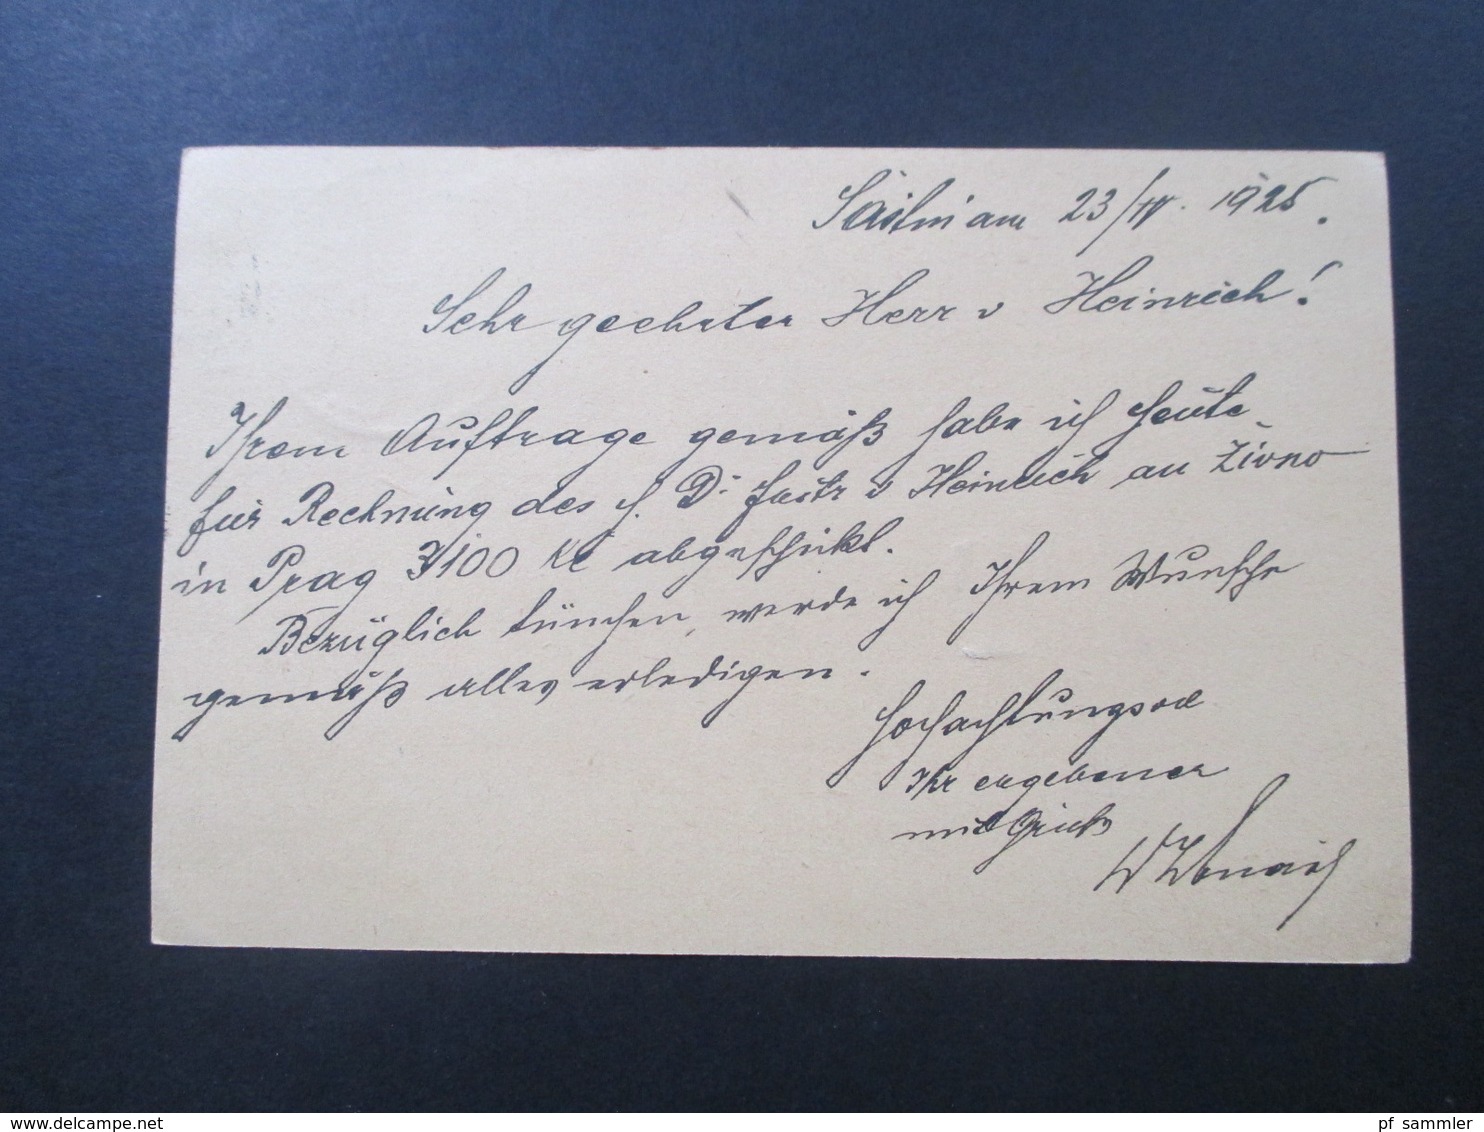 am 23/IV. 1925.
Sehr geehrter Herr v Heinrich!
Ihrem Auftrage gemäß habe ich heute
für Rechnung des H. Dr v Heinrich an Živno
in Prag 3100 Kč abgeschickt.
Bezüglich tünchen, werde ich Ihrem Wunsche
gemäß alles erledigen.
Hochachtungsvoll
Ihr ergebener
pf sammler
delcampe.net